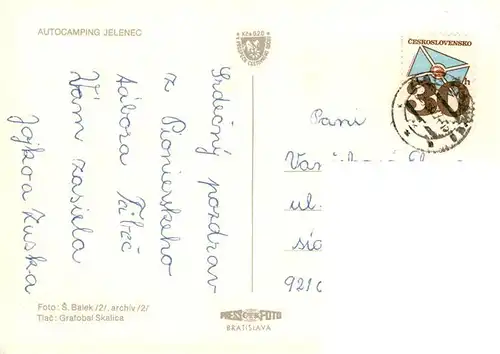 AUTOCAMPING JELENEC
Srdečný pozdrav
z Pionierskeho
tábora Tribeč
Vám zasiela
Jojkova Zuska
Foto: Š. Balek /2/, archív /2/
Tlač: Grafobal Skalica
PRESSFOTO
BRATISLAVA
ČESKOSLOVENSKO
30
Pani
ul.
921